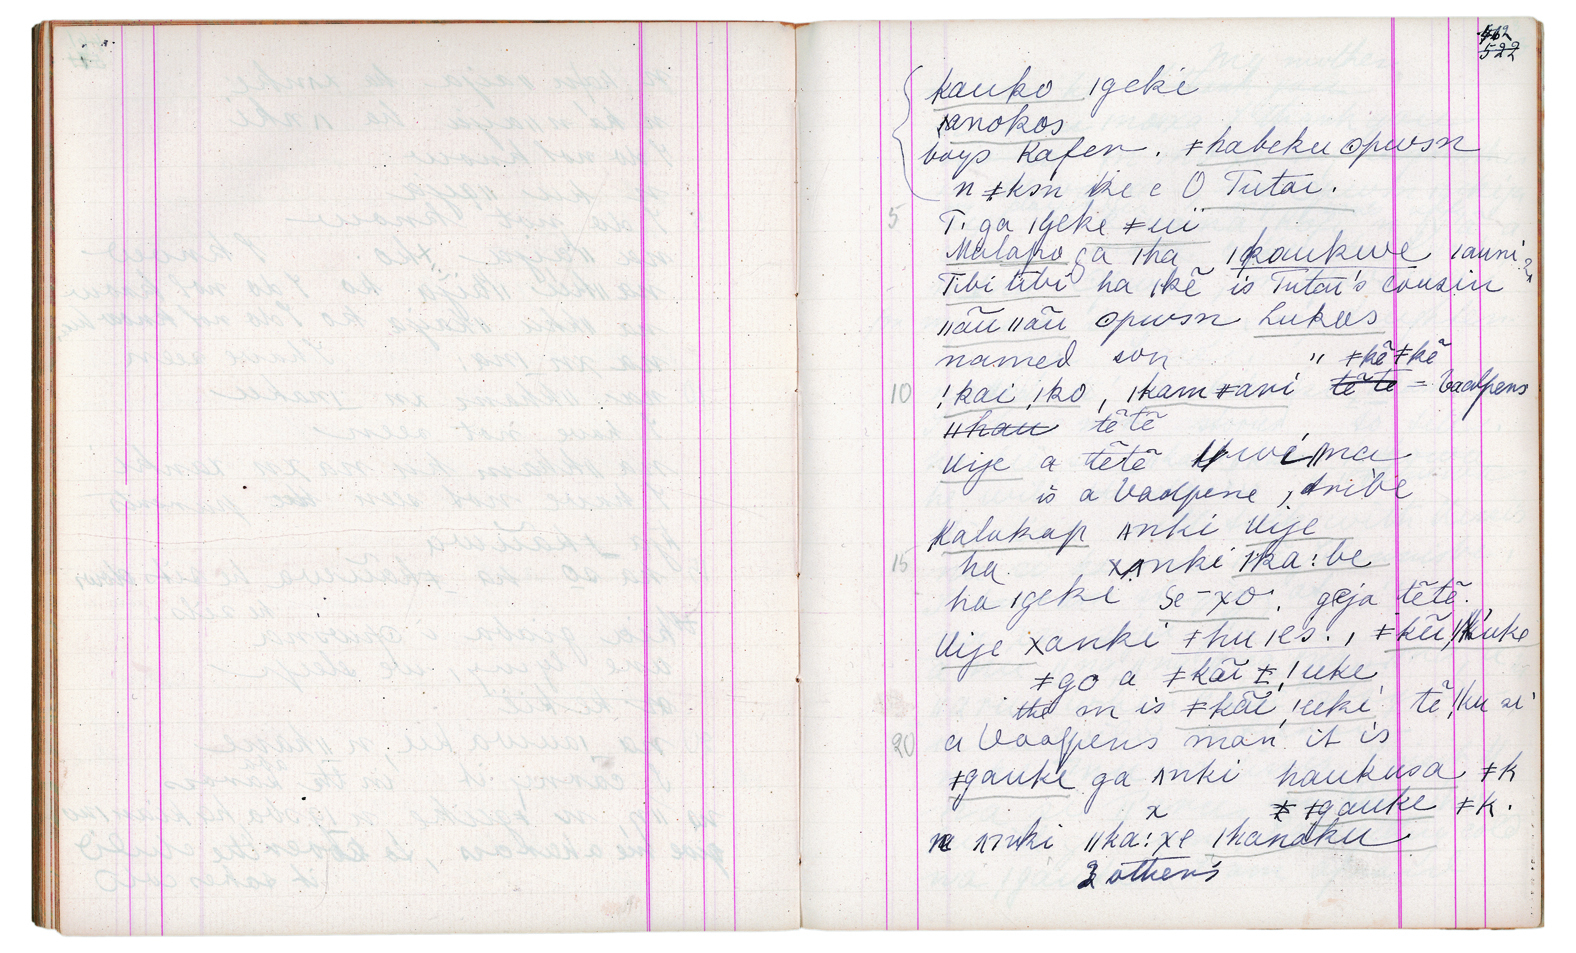 522
kauko ǀgeke
xanokos
boys Kafer. ǂhabeku ʘpwsn
n ǂksn ke e O Tutai.
5 T. ga ǀgeke ǂui
Malapo ga ǀha ǀkaukwe ǀauni
Tibi tibi ha ǀkē is Tutai's cousin
ǁāuǁāu ʘpwsn Lukas
named son " ǂkẽǂkẽ
10 ! kai !ko, ǀkamǂani tẽte = Vaalpens
ǁhau tẽtẽ
Uije a tẽtẽ
is a Vaalpene, tribe
Kalakap ʌnki Uije
15 ha xʌnki ǁka:be
ha ǀgeki Se-xo. geja tẽtẽ.
Uije xanki ǂhuǀes.
ǂgo a ǂkāi ǂ!uke
the m is ǂkāi !uki
20 a Vaalpens man it is
ǂgauke ga ʌnki haukusa ǂK
x ǂ ǂgauke ǂK.
n ʌnki ǁka:xe ǀkanaku
2 others